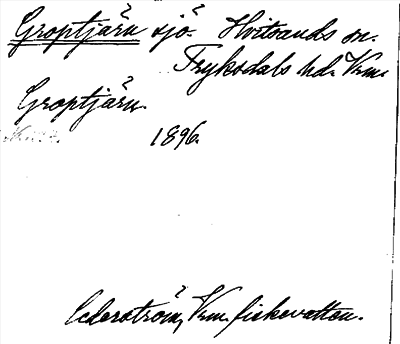 Groptjärn sjö. Hvitsands sn.
Fryksdals hd. Vrm.
Groptjärn.
1896.
Cederström, Vrm. fiskevatten.